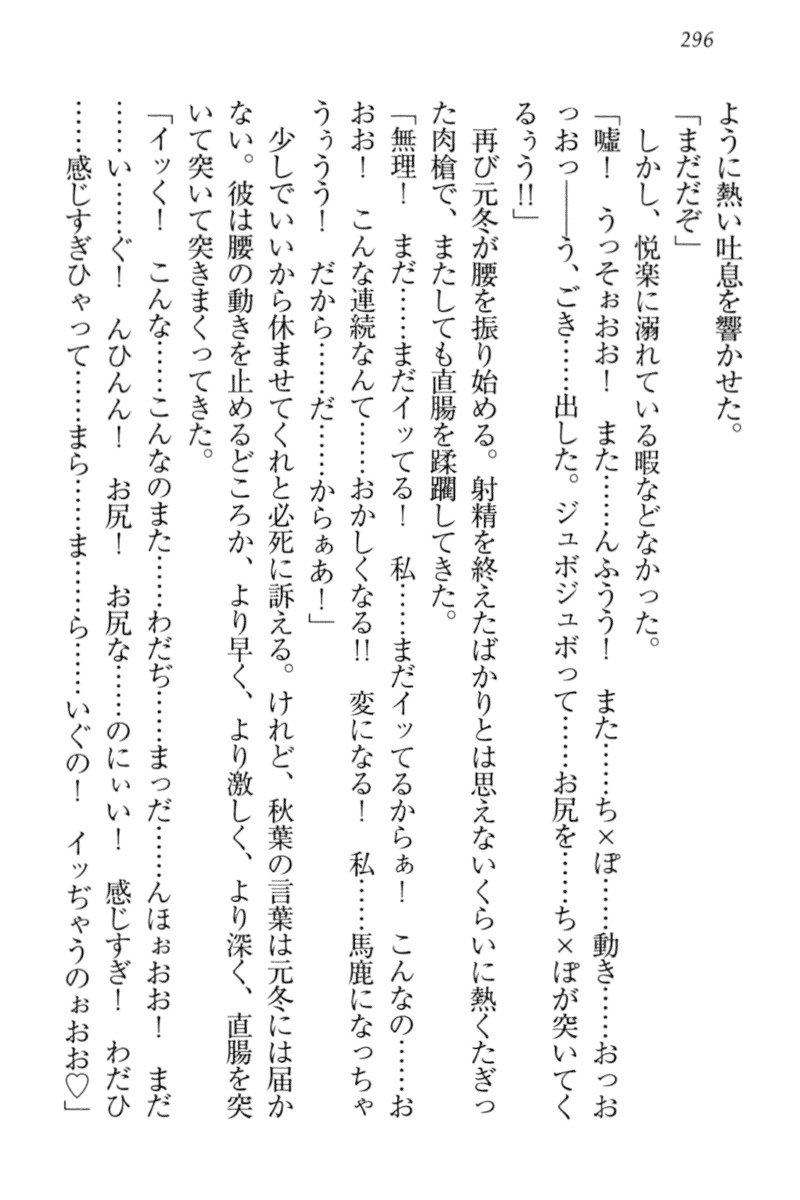 296
ように熱い吐息を響かせた。
「まだだぞ」
　しかし、悦楽に溺れている暇などなかった。
「嘘！　うっそぉおお！　また……んふうう！　また……ち×ぽ……動き……おっお
っおっ――う、ごき……出した。ジュボジュボって……お尻を……ち×ぽが突いてく
るぅう!!」
　再び元冬が腰を振り始める。射精を終えたばかりとは思えないくらいに熱くたぎっ
た肉槍で、またしても直腸を蹂躙してきた。
「無理！　まだ……まだイッてる！　私……まだイッてるからぁ！　こんなの……お
おお！　こんな連続なんて……おかしくなる!!　変になる！　私……馬鹿になっちゃ
うぅうう！　だから……だ……からぁあ！」
　少しでいいから休ませてくれと必死に訴える。けれど、秋葉の言葉は元冬には届か
ない。彼は腰の動きを止めるどころか、より早く、より激しく、より深く、直腸を突
いて突いて突きまくってきた。
「イッく！　こんな……こんなのまた……わだぢ……まっだ……んほぉおお！　まだ
……い……ぐ！　んひんん！　お尻！　お尻な……のにぃい！　感じすぎ！　わだひ
……感じすぎひゃって……まら……ま……ら……いぐの！　イッぢゃうのぉおお♡」